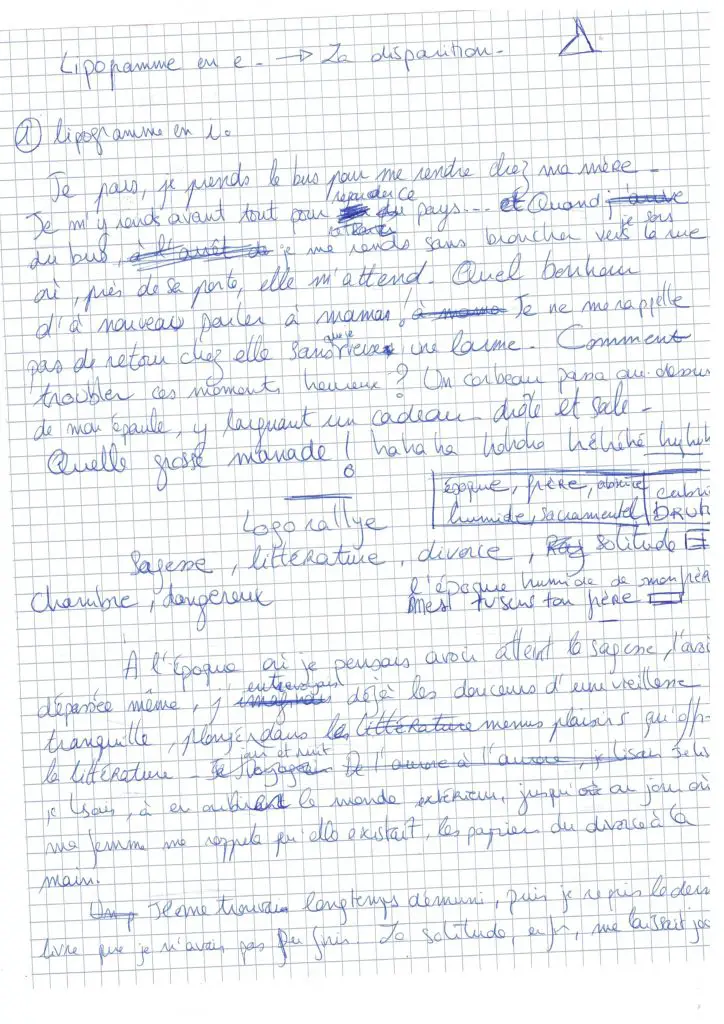 Lipogramme en e. → La disparition.
① lipogramme en i.
Je pars, je prends le bus pour me rendre chez ma mère.
Je m'y rends avant tout pour du pays... et Quand
je sors
du bus, à l'arrêt je me rends sans broncher vers la rue
où, près de sa porte, elle m'attend. Quel bonheur
d'à nouveau parler à maman! Je ne me rappelle
pas de retour chez elle sans que je une larme. Comment
troubler ces moments heureux? Un corbeau passa au-dessus
de mon épaule, y larguant un cadeau drôle et sale.
Quelle grosse marade! hahaha hohoho héhéhé
époque, frère,
humide, sacramentel
Logorallye
Sagesse, littérature, divorce, solitude
chambre, dangereux
l'époque humide de mon
A l'époque où je pensais avoir atteint la sagesse, l'avoi
dépassée même, j'entrevoyais déjà les douceurs d'une vieillesse
tranquille, plonger dans les littérature menus plaisirs qu'off
la littérature. jour et nuit De l'aurore à l'aurore, je lisais
je lisais, à en oublier le monde extérieur, jusqu'au jour où
ma femme me rappela qu'elle existait, les papiers du divorce à la
main.
Je me trouvai longtemps démuni, puis je repris le dern
livre que je n'avais pas pu finir. La solitude, enfin, me laissait